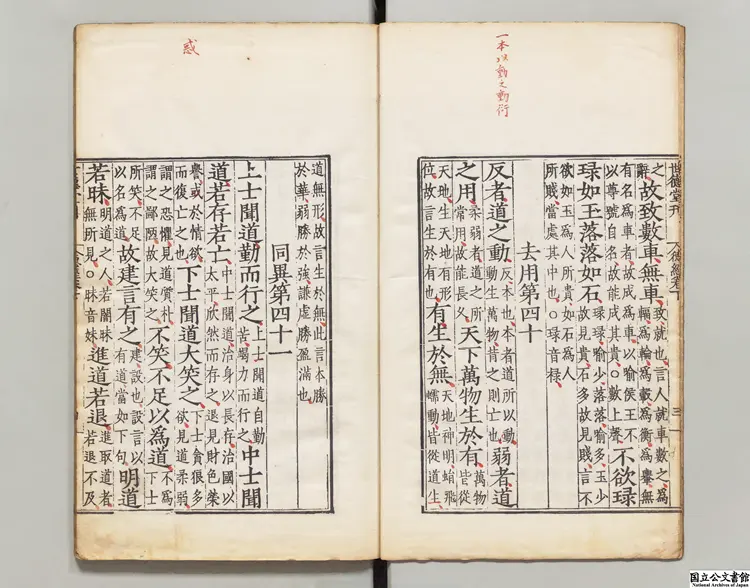 一本以動之動衍
世德堂刊
之辭故致數車無車致就也言人就車數之為輻為輪為轂為衡為轝無
有名為車者故成為車以喻侯王不以尊號自名故能成其貴○數上聲不欲琭
琭如玉落落如石琭琭喻少落落喻多玉少故見貴石多故見賤言不
欲如玉為人所貴如石為人所賤當處其中也○琭音祿
去用第四十
反者道之動反本也本者道所以動動生萬物背之則亡也弱者道
之用柔弱者道之所常用故能長久天下萬物生於有萬物皆從
天地生天地有形位故言生於有也有生於無天地神明蜎飛蠕動皆從道生
惑
道無形故言生於無此言本勝於華弱勝於強謙虛勝盈滿也
同異第四十一
上士聞道勤而行之上士聞道自勤苦竭力而行之中士聞
道若存若亡中士聞道治身以長存治國以太平欣然而存之退見財色榮
譽或於情欲而復亡之也下士聞道大笑之下士貪狠多欲見道柔弱
謂之恐懼見道質朴謂之鄙陋故大笑之不笑不足以為道不為下士
所笑不足以名為道故建言有之建設也設言以有道當如下句明道
若昧明道之人若闇昧無所見○昧音妹進道若退進取道者若退不及
国立公文書館
National Archives of Japan